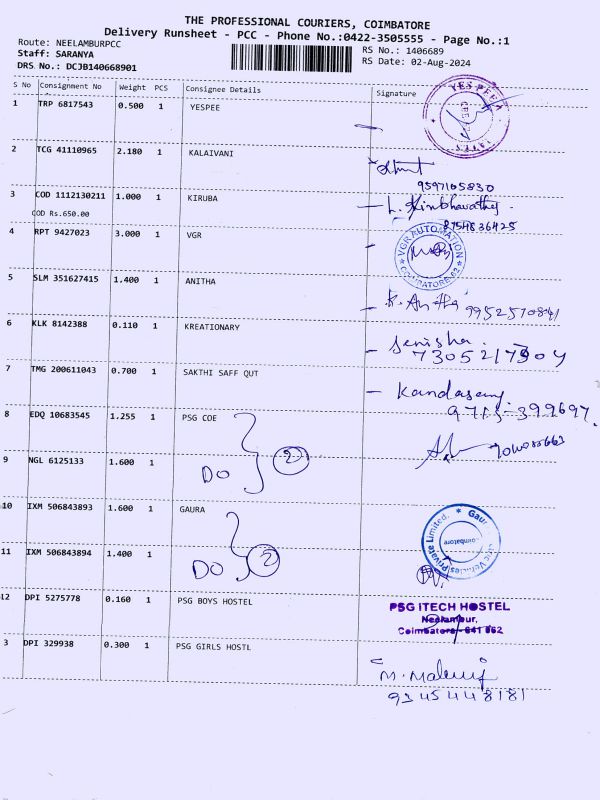 THE PROFESSIONAL COURIERS, COIMBATORE
Delivery Runsheet - PCC - Phone No.:0422-3505555 - Page No.:1
Route: NEELAMBURPCC
Staff: SARANYA
DRS No.: DCJB140668901
RS No.: 1406689
RS Date: 02-Aug-2024
S No Consignment No Weight PCS Consignee Details Signature
1 TRP 6817543 0.500 1 YESPEE
YES PEE
2 TCG 41110965 2.180 1 KALAIVANI
9597105830
3 COD 1112130211 1.000 1 KIRUBA
COD Rs.650.00
8754836425
4 RPT 9427023 3.000 1 VGR
VGR AUTOMATION
COIMBATORE-62
5 SLM 351627415 1.400 1 ANITHA
K. Anitha
6 KLK 8142388 0.110 1 KREATIONARY
Jenisha
7 TMG 200611043 0.700 1 SAKTHI SAFF QUT
Kandasamy
8 EDQ 10683545 1.255 1 PSG COE
9 NGL 6125133 1.600 1
DO 2
10 IXM 506843893 1.600 1 GAURA
Private Limited. * Gau
Coimbatore
11 IXM 506843894 1.400 1
DO 2
12 DPI 5275778 0.160 1 PSG BOYS HOSTEL
PSG ITECH HOSTEL
Neelambur,
Coimbatore - 641 062
3 DPI 329938 0.300 1 PSG GIRLS HOSTL
9345448181